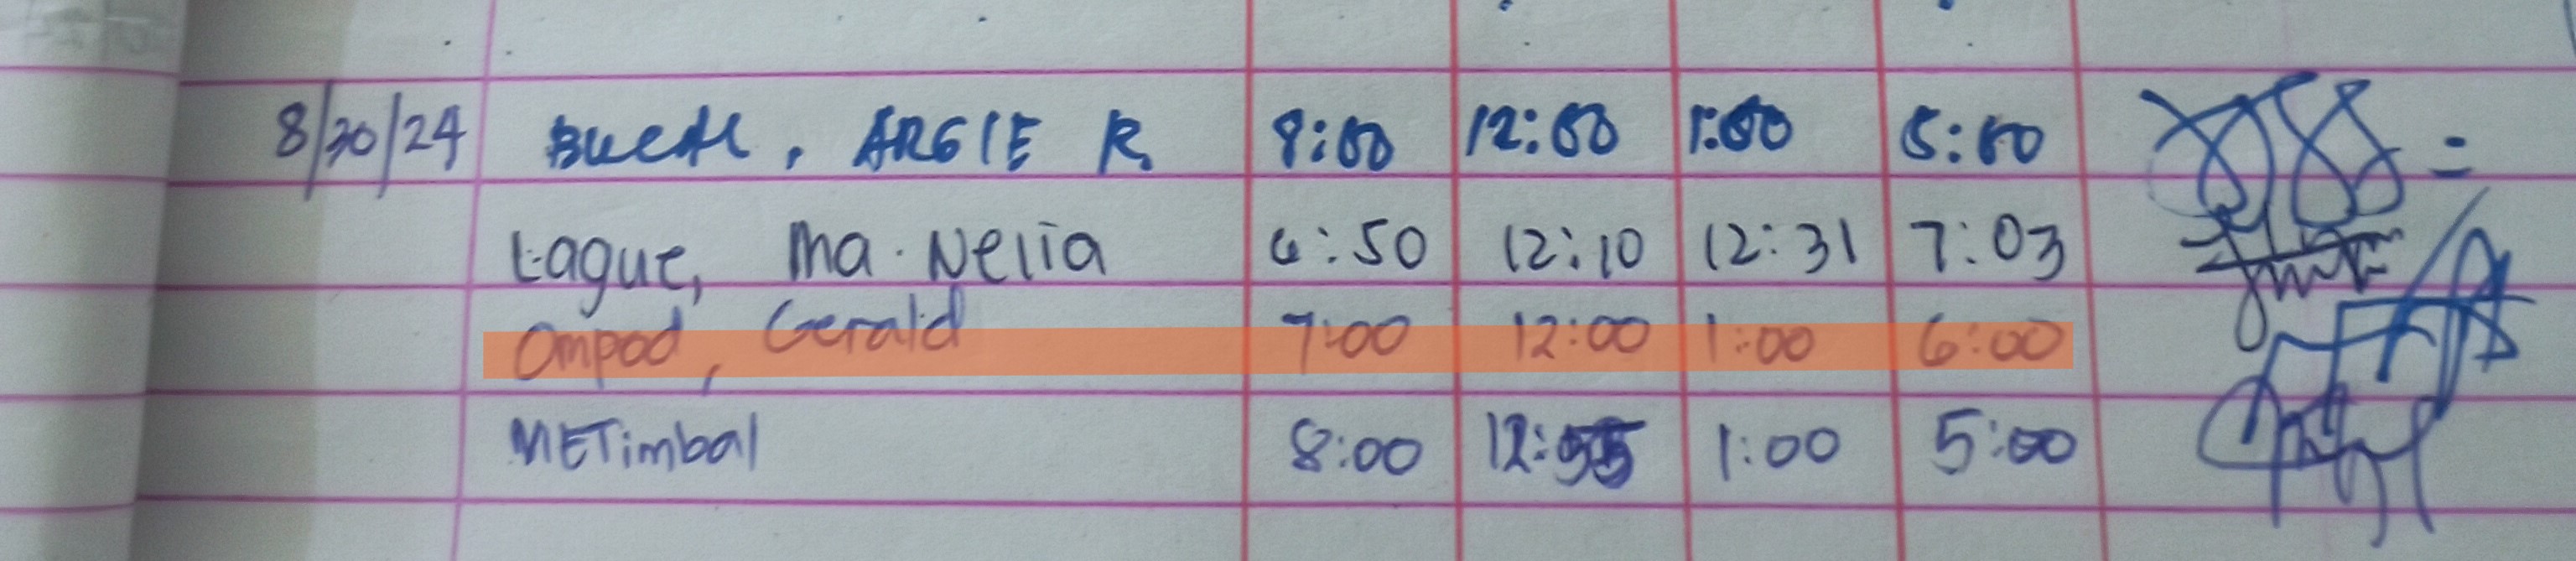 8/30/24 ARGIE R. 8:00 12:00 1:00 5:00
Lague, Ma. Nelia 6:50 12:10 12:31 7:03
Ompod, Gerald 7:00 12:00 1:00 6:00
METimbal 8:00 12:55 1:00 5:00